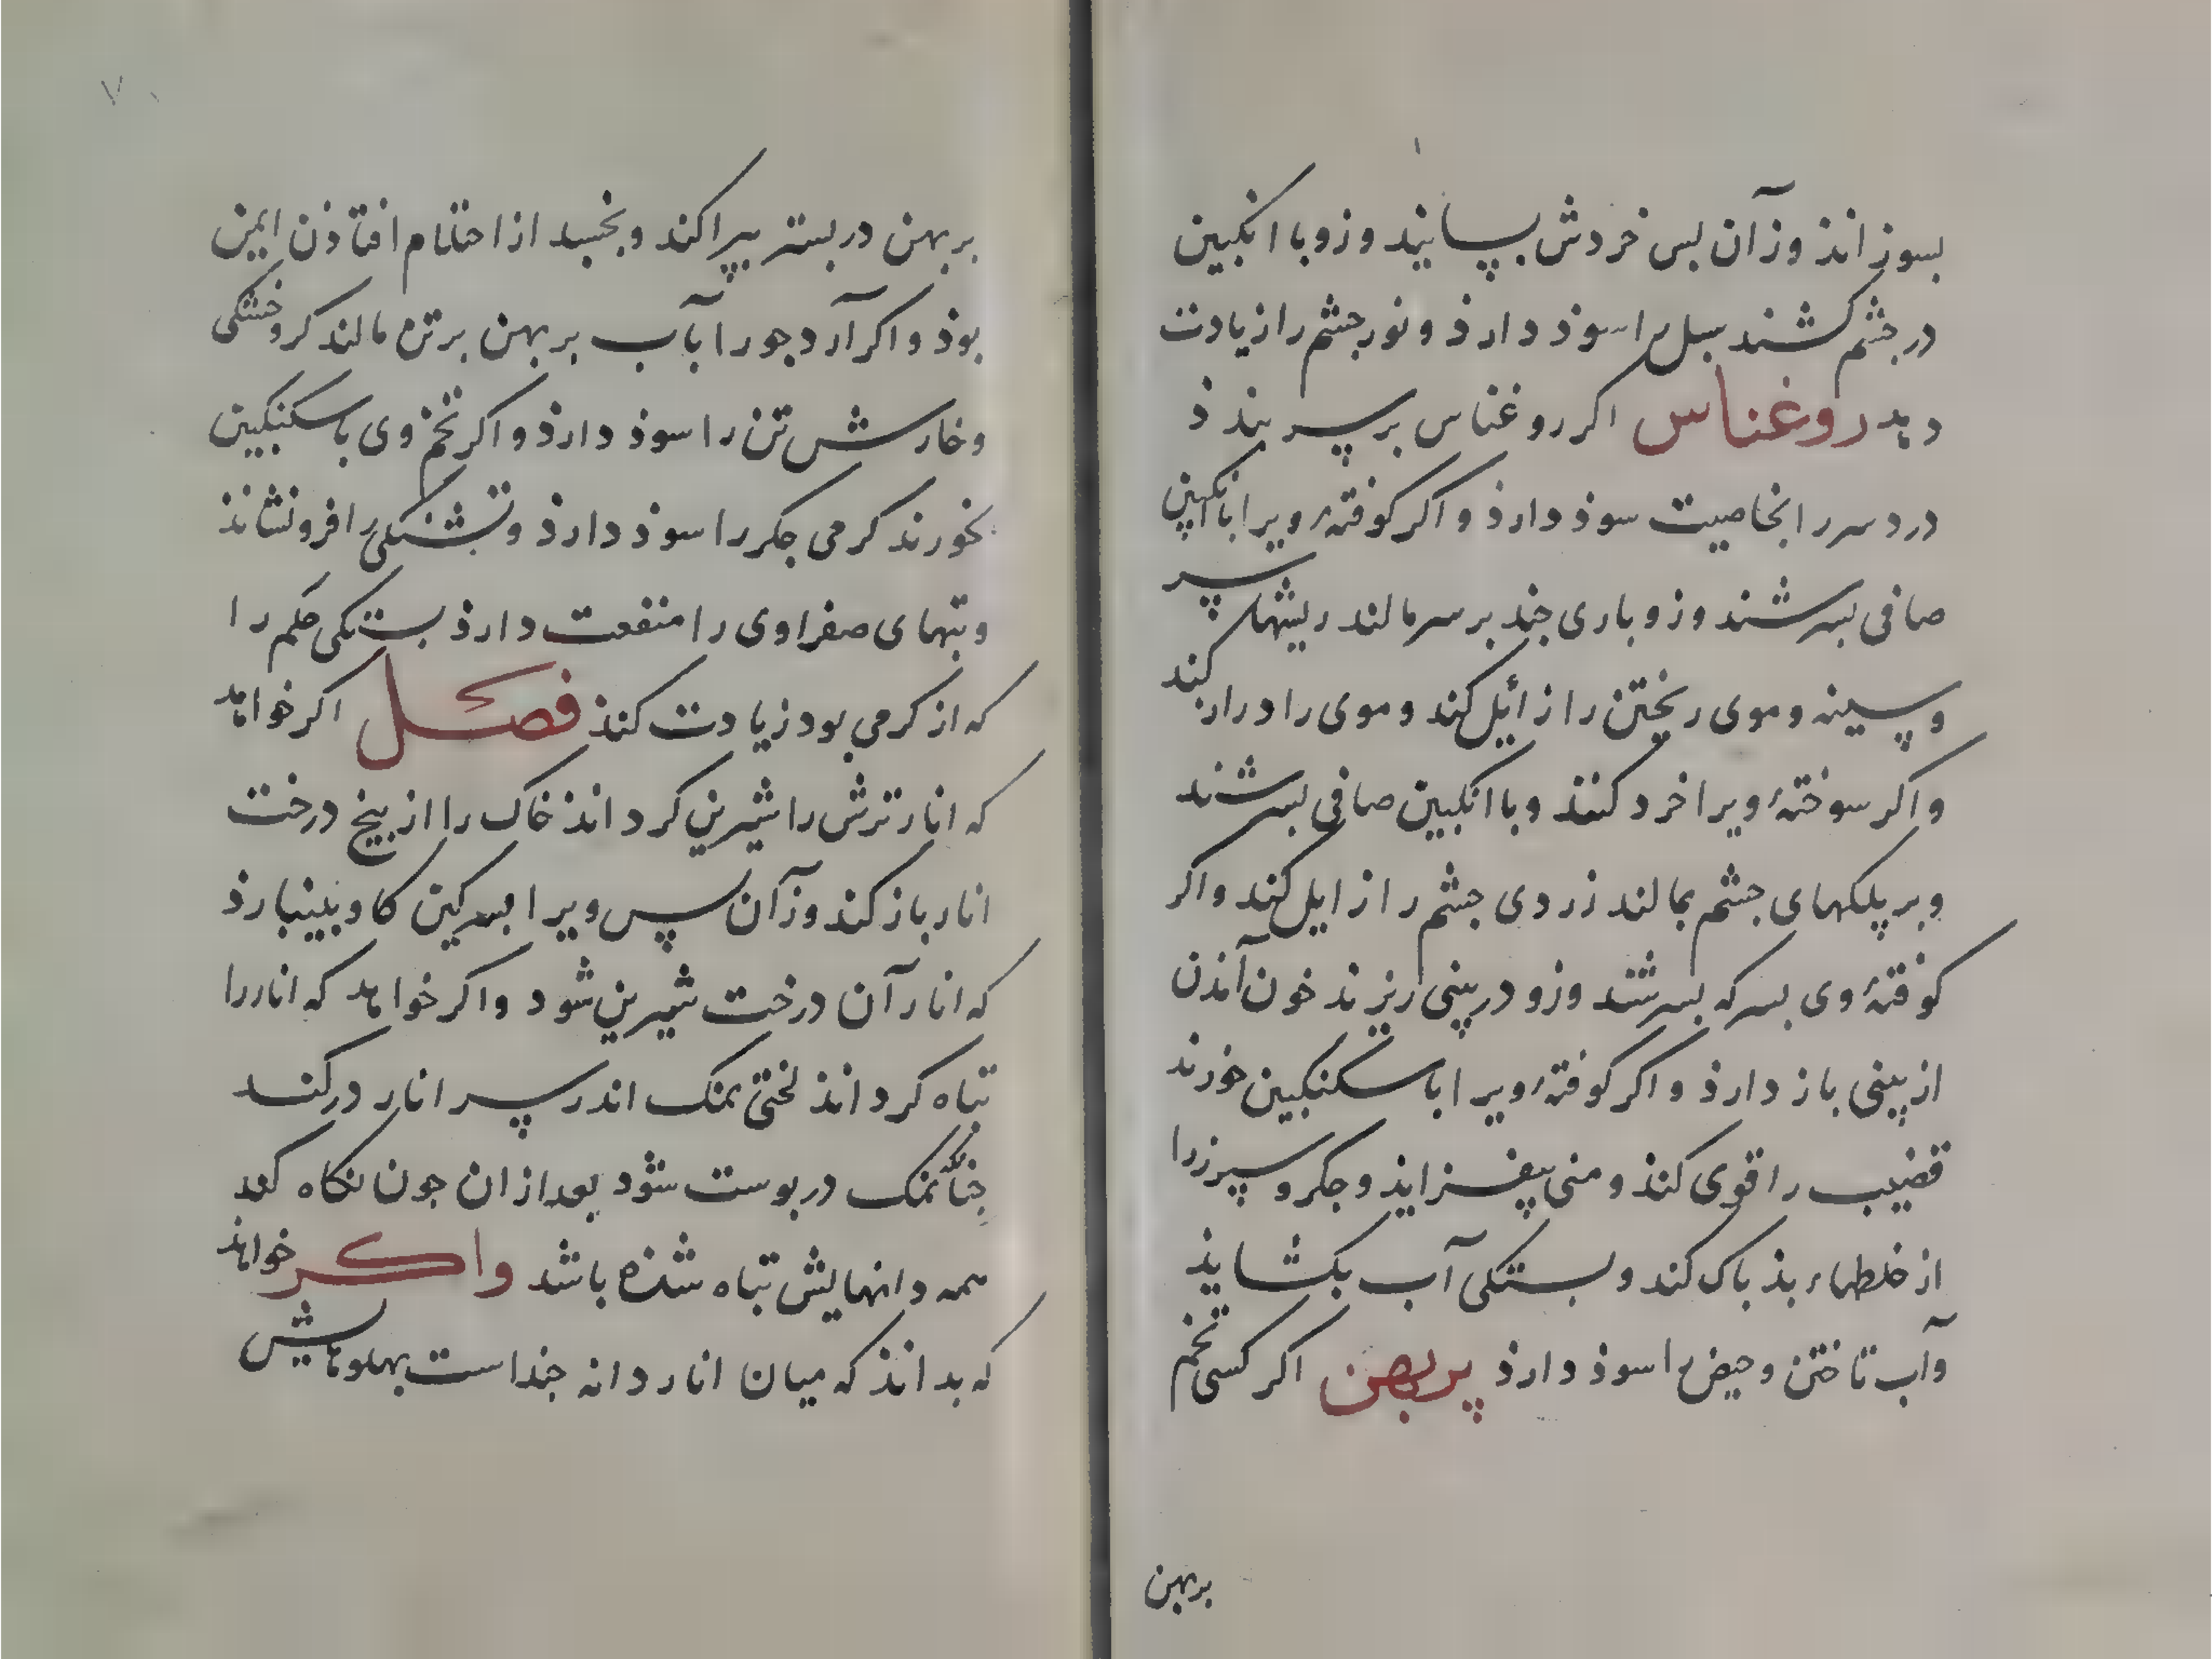 بسوزانذ وزآن بس خردش بپسایند وزو با انکبین
در جشم کشند سبل را سوذ دارذ و نور جشم را زیادت
دهد روغناس اکر روغناس بر سر بندذ
درد سر را بخاصیت سوذ دارذ و اکر کوفتهٔ ویرا با انکبین
صافی بسرشند وزو باری جند بر سر مالند ریشهاء سر
و سینه و موی ریختن را زائل کند و موی را دراز کند
و اکر سوختهٔ ویرا خرد کنند و با انکبین صافی بسرشند
و بر پلکهای جشم بمالند زردی جشم را زایل کند و اکر
کوفتهٔ وی بسرکه بسرشند وزو در بینی ریزند خون آمذن
از بینی باز دارذ و اکر کوفتهٔ ویرا با سکنکبین خورند
قضیب را قوی کنذ و منی بیفزایذ و جکر و سپرز را
از خلطهاء بذ باک کند و بستکی آب بکشایذ
و آب تاختن و حیض را سوذ دارذ پربهن اکر کسی تخم
بربهن
بربهن در بستر بپراکند و بخسبد از احتلام افتاذن ایمن
بوذ و اکر آرد جو را بآب بربهن بر تن مالند کر و خشکی
و خارش تن را سوذ دارذ و اکر تخم وی با سکنکبین
بخورند کرمی جکر را سوذ دارذ و تشنکی را فرو نشانذ
و تبهای صفراوی را منفعت دارذ بستکی شکم را
که از کرمی بود زیادت کنذ فصل اکر خواهد
که انار ترش را شیرین کرداند خاک را از بیخ درخت
انار باز کند وزآن پس ویرا بسرکین کاو بینبارذ
که انار آن درخت شیرین شود و اکر خواهد که انار را
تباه کرداند لختی نمک اندر سر انار در کند
جنانک نمک در بوست شود بعد از ان جون نکاه کند
همه دانهایش تباه شذه باشد واکر خواهد
که بدانذ که میان انار دانه جند است بهلوهایش